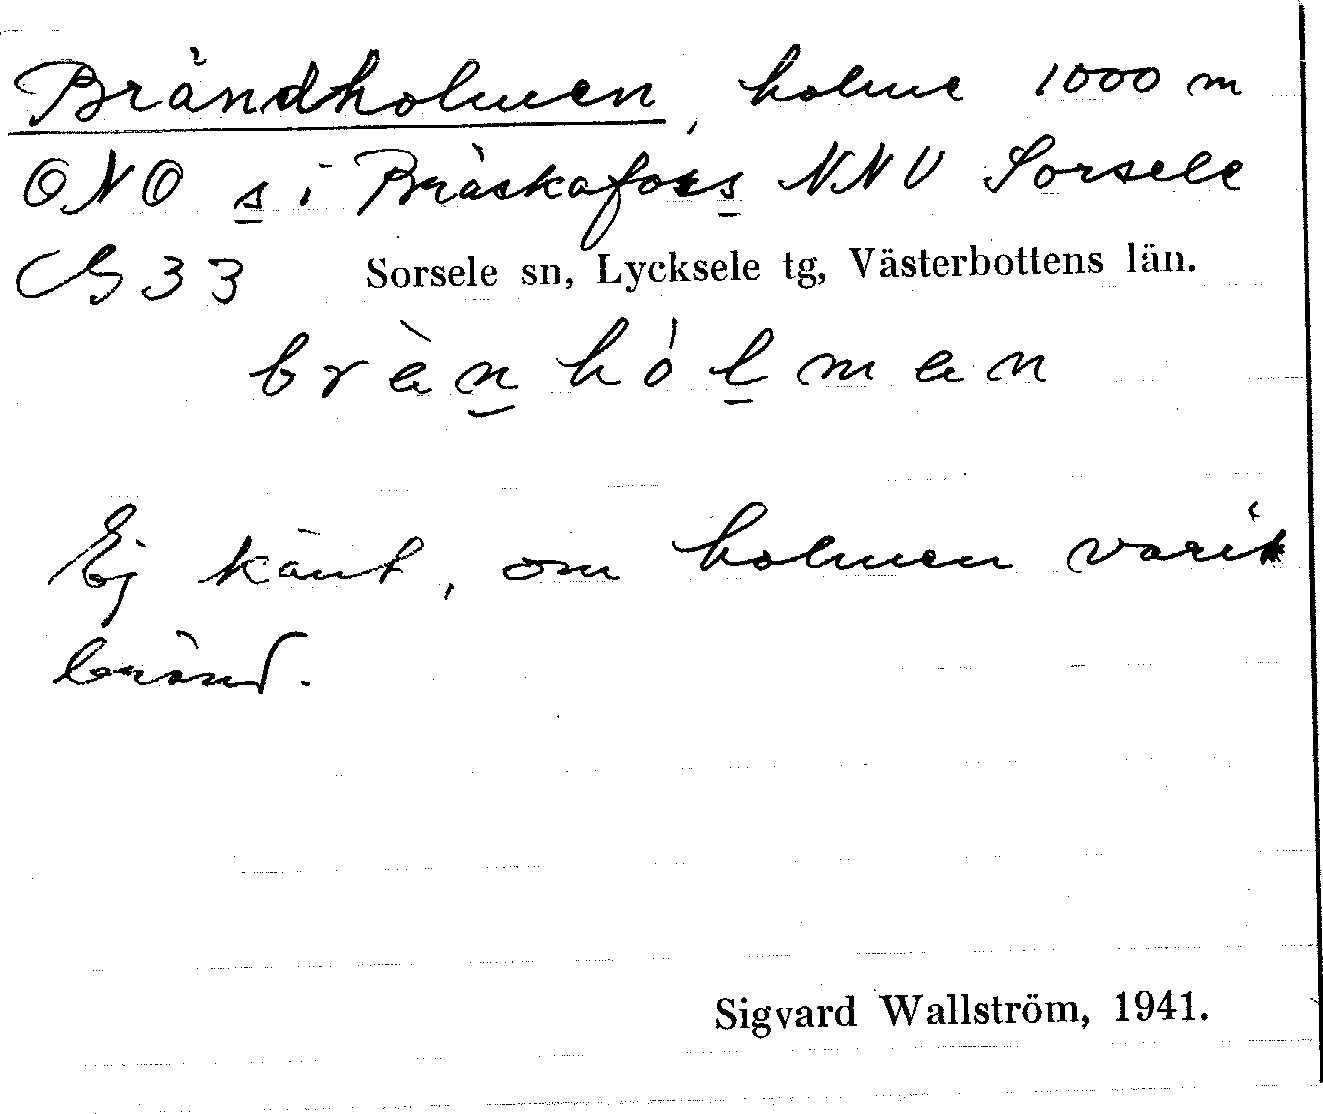 Brändholmen, holme 1000 m
ONO s i Bräskafors NNV Sorsele
C 33 Sorsele sn, Lycksele tg, Västerbottens län.
brèn hólmen
Ej känt, om holmen varit
bränd.
Sigvard Wallström, 1941.